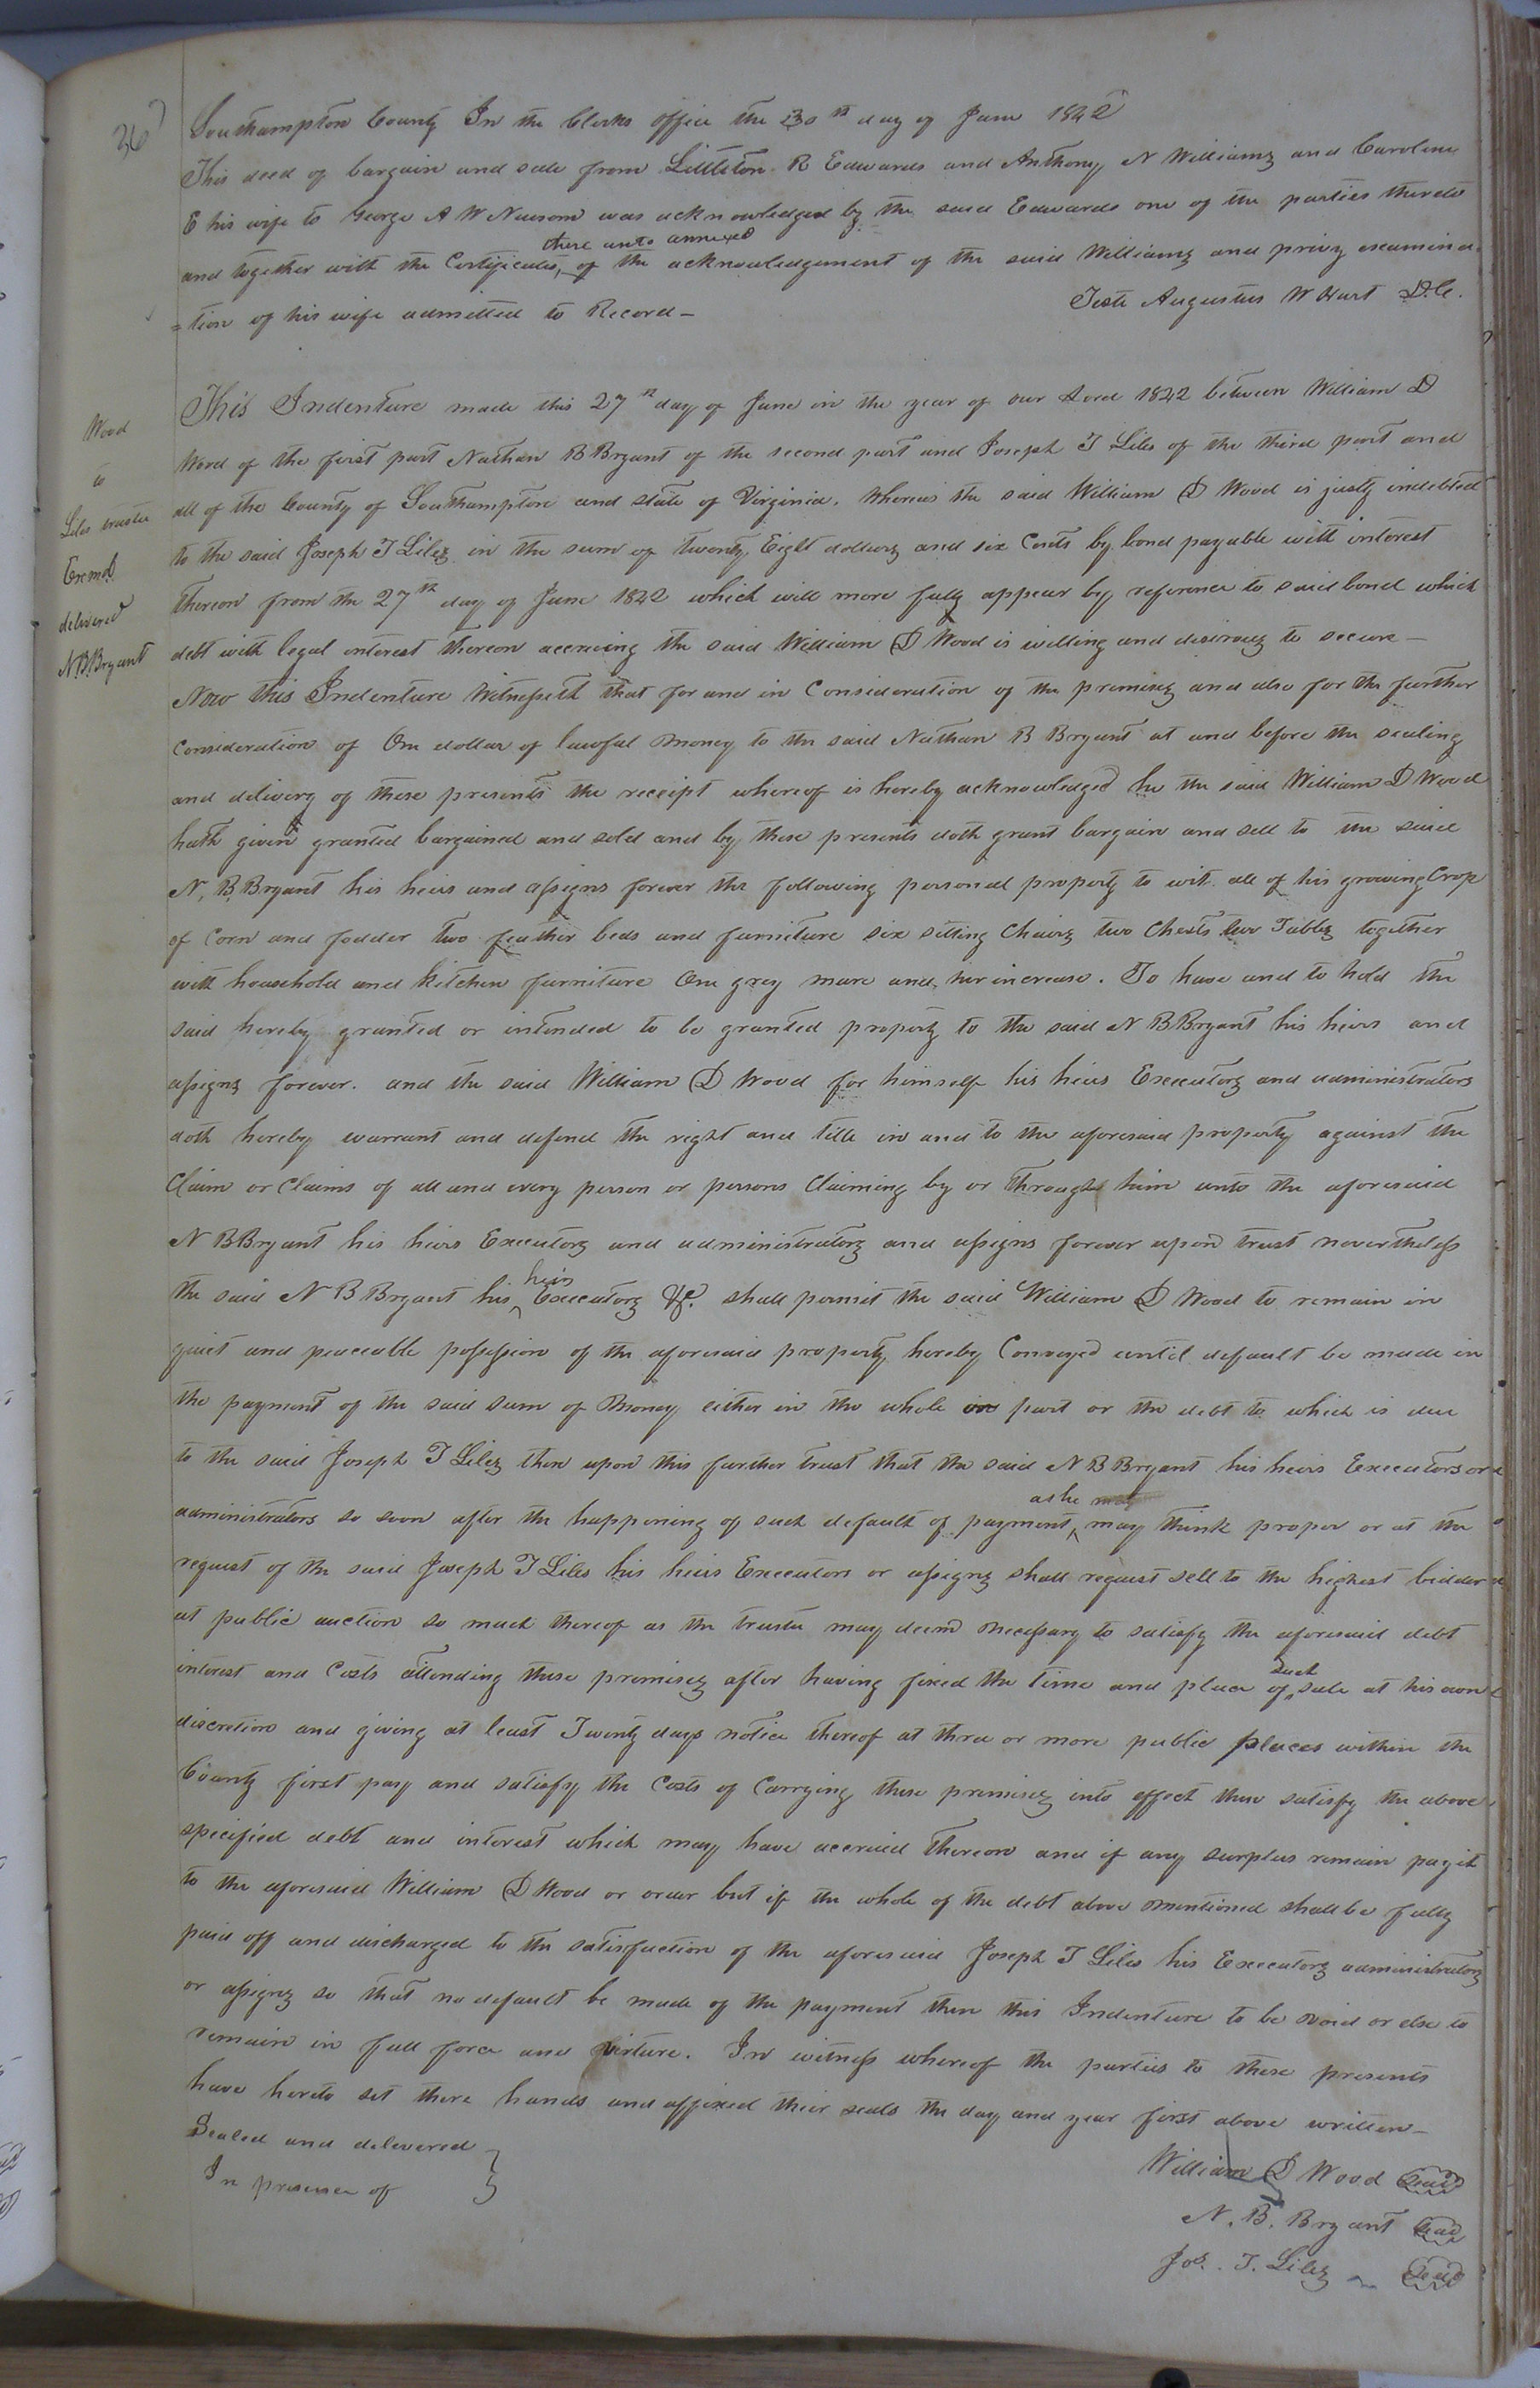 367
Southampton County In the Clerks office the 30th day of June 1842
This deed of bargain and sale from Littleton R Edwards and Anthony N Williams and Caroline
E his wife to George A W Newsom was acknowledged by the said Edwards one of the parties thereto
there unto annexed
and together with the Certificates, of the acknowledgement of the said Williams and privy examina-
=tion of his wife admitted to Record-
Teste Augustus W Hart D.C.
Wood
to
Liles trustee
Exmd.
delivered
N.B.Bryant
This Indenture made this 27th day of June in the year of our Lord 1842 between William D
Wood of the first part Nathan B Bryant of the second part and Joseph T Liles of the third part and
all of the County of Southampton and state of Virginia. Whereas the said William D Wood is justly indebted
to the said Joseph T Liles in the sum of twenty Eight dollars and six Cents by bond payable with interest
thereon from the 27th day of June 1842 which will more fully appear by reference to said bond which
debt with legal interest thereon accruing the said William D Wood is willing and desirous to secure-
Now this Indenture Witnesseth that for and in Consideration of the premises and also for the further
Consideration of One dollar of lawful money to the said Nathan B Bryant at and before the sealing
and delivery of these presents the receipt whereof is hereby acknowledged he the said William D Wood
hath given granted bargained and sold and by these presents doth grant bargain and sell to the said
N, B,Bryant his heirs and assigns forever the following personal property to wit. all of his growing Crop
of Corn and fodder two feather beds and furniture six sitting Chairs two Chests two Tables together
with household and kitchen furniture One grey mare and her increase. To have and to hold the
said hereby granted or intended to be granted property to the said N B Bryant his heirs and
assigns forever. and the said William D Wood for himself his heirs Executors and administrators
doth hereby warrant and defend the right and title in and to the aforesaid property against the
Claim or Claims of all and every person or persons Claiming by or through him unto the aforesaid
N B Bryant his heirs Executors and administrators and assigns forever upon trust nevertheless
heirs
the said N B Bryant his ^ Executors &c. shall permit the said William D Wood to remain in
quiet and peaceable possession of the aforesaid property hereby Conveyed until default be made in
the payment of the said sum of money either in the whole or part or the debt to which is due
to the said Joseph T Liles then upon this further trust that the said N B Bryant his heirs Executors or
as he
administrators so soon after the happening of such default of payment ^ may think proper or at the
request of the said Joseph T Liles his heirs Executors or assigns shall request sell to the highest bidder
at public auction so much thereof as the trustee may deem necessary to satisfy the aforesaid debt
such
interest and Costs attending these premises after having fixed the time and place of ^ sale at his own
discretion and giving at least Twenty days notice thereof at three or more public places within the
County first pay and satisfy the Costs of Carrying these premises into effect then satisfy the above
specified debt and interest which may have accrued thereon and if any surplus remain pay it
to the aforesaid William D Wood or order but if the whole of the debt above mentioned shall be fully
paid off and discharged to the satisfaction of the aforesaid Joseph T Liles his Executors administrators
or assigns so that no default be made of the payment then this Indenture to be void or else to
remain in full force and virture. In witness whereof the parties to these presents
have hereto set there hands and affixed their seals the day and year first above written-
Sealed and delivered }
In presence of
William D Wood Seal
N. B. Bryant Seal
Jos. T. Liles Seal